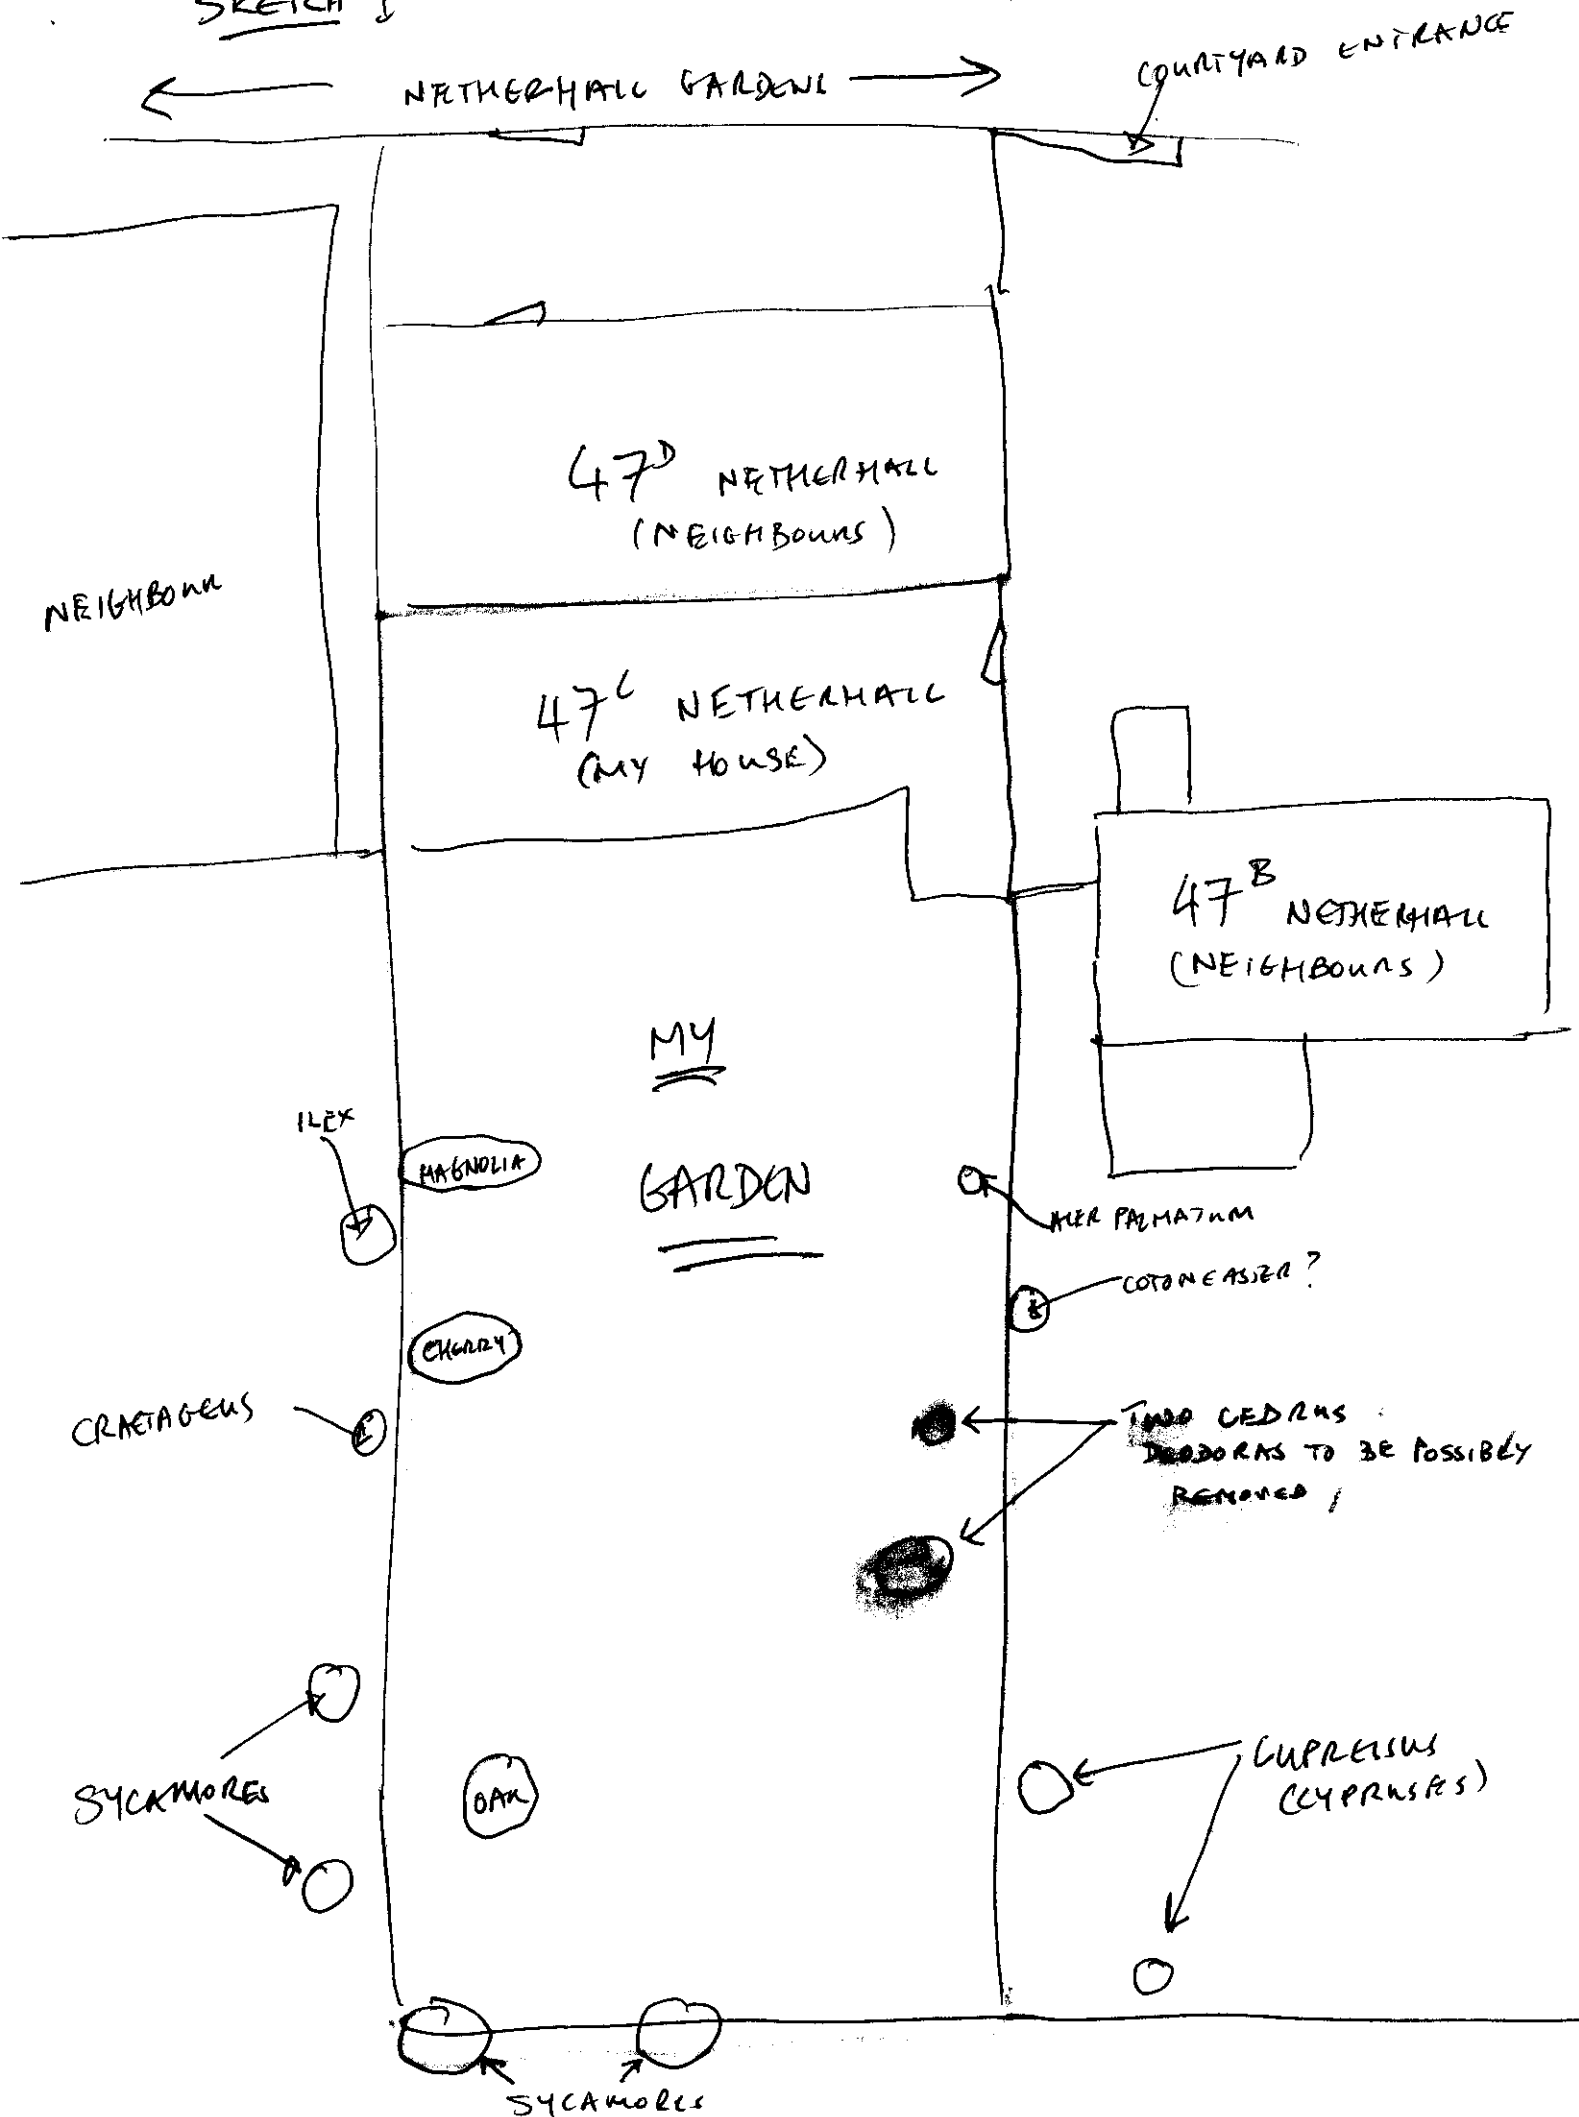 SKETCH 1
NETHERHALL GARDENS
COURTYARD ENTRANCE
47D NETHERHALL
(NEIGHBOURS)
NEIGHBOUR
47C NETHERHALL
(MY HOUSE)
47B NETHERHALL
(NEIGHBOURS)
MY
GARDEN
ILEX
MAGNOLIA
ACER PALMATUM
COTONEASTER?
CHERRY
CRAETAGEUS
TWO CEDRUS
DEODORAS TO BE POSSIBLY
REMOVED
SYCAMORES
OAK
CUPRESSUS
(CYPRUSES)
SYCAMORES